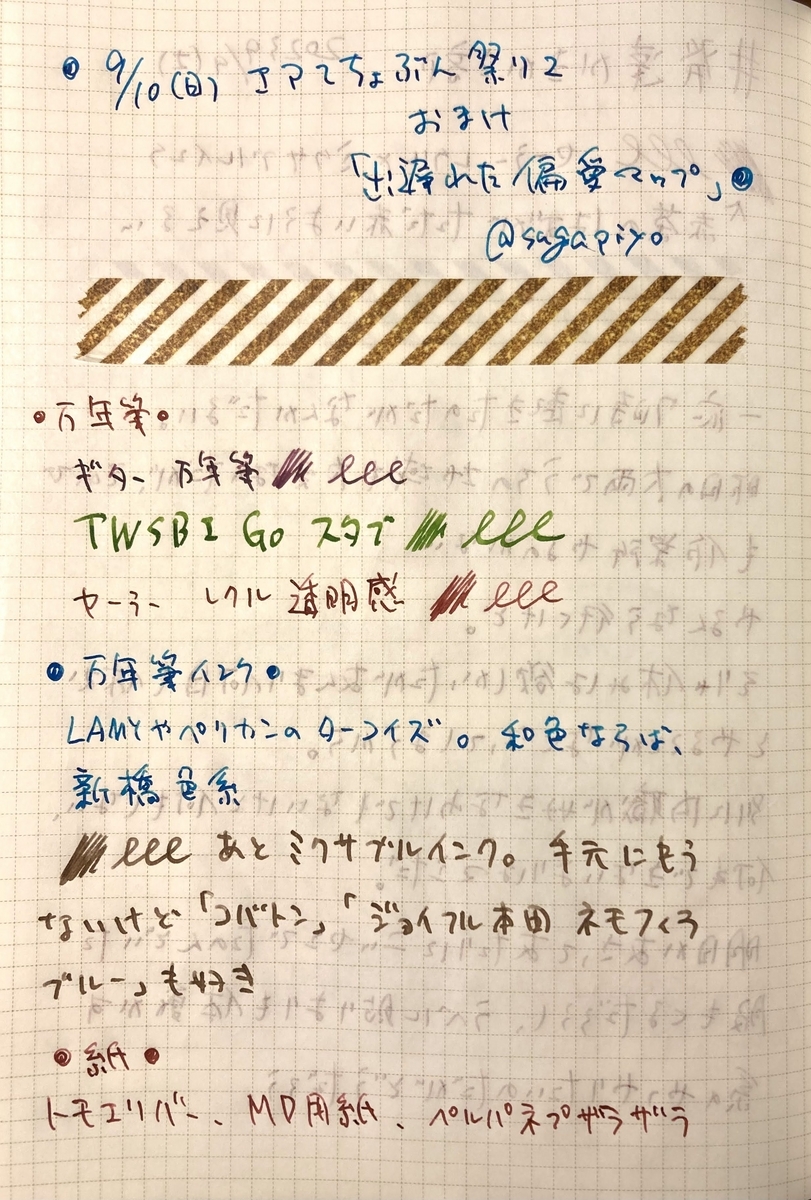 • 9/10(日) エアてちょぶん祭り2
おまけ
「出遅れた偏愛マップ」•
@sagapiyo
•万年筆•
ギター 万年筆 lll
TWSBI Go スタブ lll
セーラー レクル 透明感 lll
• 万年筆インク •
LAMYやペリカンのターコイズ。和色ならば、
新橋色系
lll あとミクサブルインク。手元にもう
ないけど「コバトン」「ジョイフル本田 ネモフィラ
ブルー」も好き
• 紙 •
トモエリバー、MD用紙、ペルパネプザラザラ